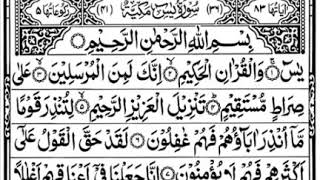 اٰیاتھا ۸۳ (۳۶) سُوْرَةُ یٰسٓ مَكِّیَّةٌ (۴۱) رکوعاتھا ۵
بِسْمِ اللّٰهِ الرَّحْمٰنِ الرَّحِیْمِ
یٰسٓ وَالْقُرْاٰنِ الْحَكِیْمِ اِنَّكَ لَمِنَ الْمُرْسَلِیْنَ عَلٰی
صِرَاطٍ مُّسْتَقِیْمٍ تَنْزِیْلَ الْعَزِیْزِ الرَّحِیْمِ لِتُنْذِرَ قَوْمًا
مَّاۤ اُنْذِرَ اٰبَآؤُهُمْ فَهُمْ غٰفِلُوْنَ لَقَدْ حَقَّ الْقَوْلُ عَلٰۤی
اَكْثَرِهِمْ فَهُمْ لَا یُؤْمِنُوْنَ اِنَّا جَعَلْنَا فِیْۤ اَعْنَاقِهِمْ اَغْلٰلًا